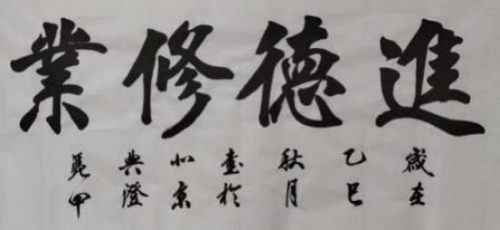 進德修業
歲在
乙巳
秋月
書於
北京